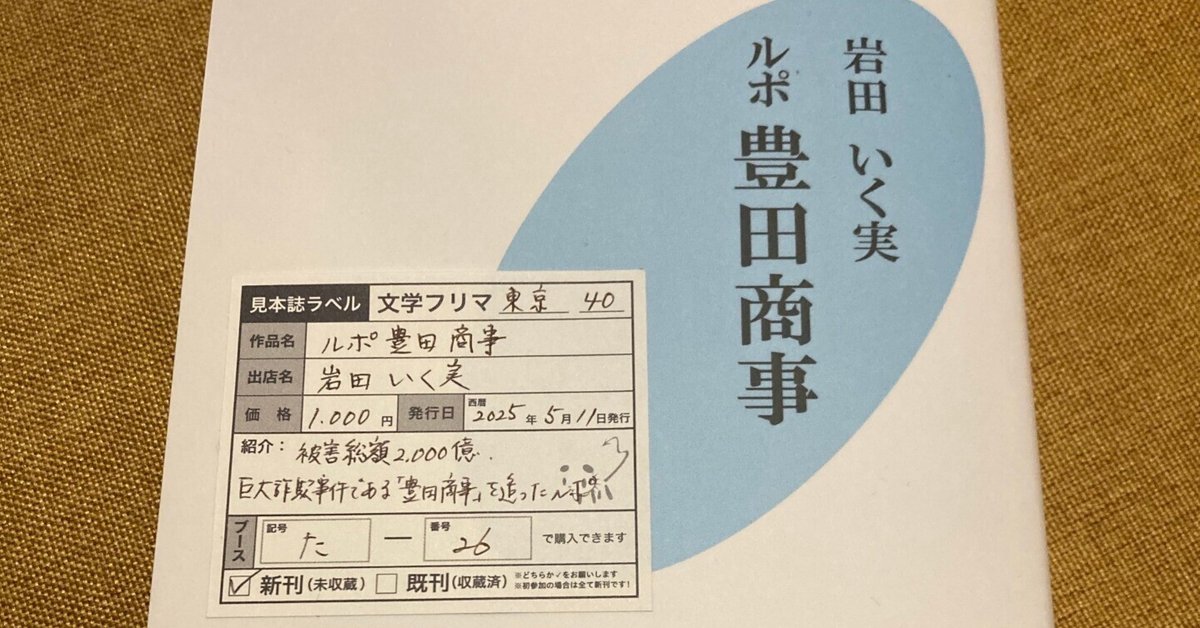 岩田 いく実
ルポ 豊田商事
見本誌ラベル 文学フリマ 東京 40
作品名 ルポ 豊田商事
出店名 岩田 いく実
価格 1.000 円 発行日 西暦 2025 年 5 月 11 日発行
紹介: 被害総額2.000億.
巨大詐欺事件である「豊田商事」を追ったルポ
ブース 記号 た — 番号 26 で購入できます
✓ 新刊(未収蔵) 既刊(収蔵済) ※どちらか✓をお願いします
※初参加の場合は全て新刊です!